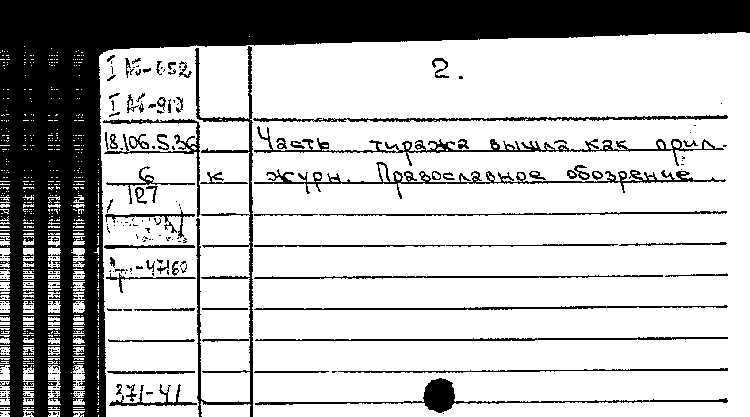 2.
I Аб-652
I Аб-910
18.106.5.36
Часть тиража вышла как прил.
6
к журн. Православное обозрение.
127
-47160
371-41